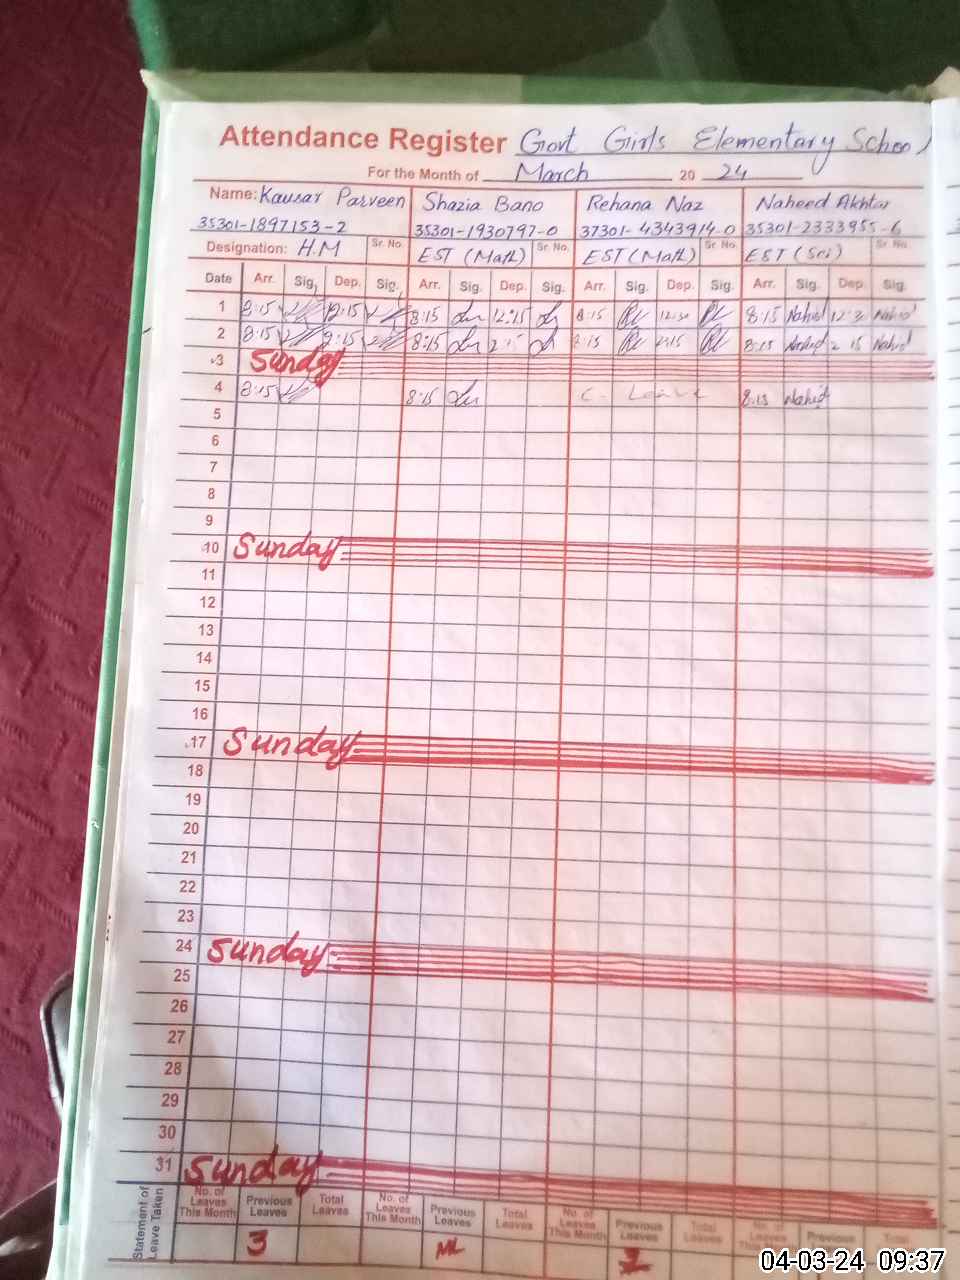 Attendance Register Govt Girls Elementary School
For the Month of March 20 24
Name: Kausar Parveen Shazia Bano Rehana Naz Naheed Akhtar
35301-1897153-2 35301-1930797-0 37301-4343914-0 35301-2333955-6
Designation: H.M Sr. No. EST (Math) Sr. No. EST (Math) Sr. No. EST (Sci) Sr. No.
Date Arr. Sig. Dep. Sig. Arr. Sig. Dep. Sig. Arr. Sig. Dep. Sig. Arr. Sig. Dep. Sig.
1 8:15 12:15 8:15 12:15 8:15 12:30 8:15 Nahid 12:3 Nahid
2 8:15 2:15 8:15 8:15 2:15 8:15 Nahid 2 15 Nahid
3 Sunday
4 8:15 8:15 C. Leave 8:15 Nahid
5
6
7
8
9
10 Sunday
11
12
13
14
15
16
17 Sunday
18
19
20
21
22
23
24 Sunday
25
26
27
28
29
30
31 Sunday
Statement of Leave Taken No. of Leaves This Month Previous Leaves Total Leaves No. of Leaves This Month Previous Leaves Total Leaves No. of Leaves This Month Previous Leaves Total Leaves No. of Leaves This Month Previous Leaves Total
3 ML
04-03-24 09:37